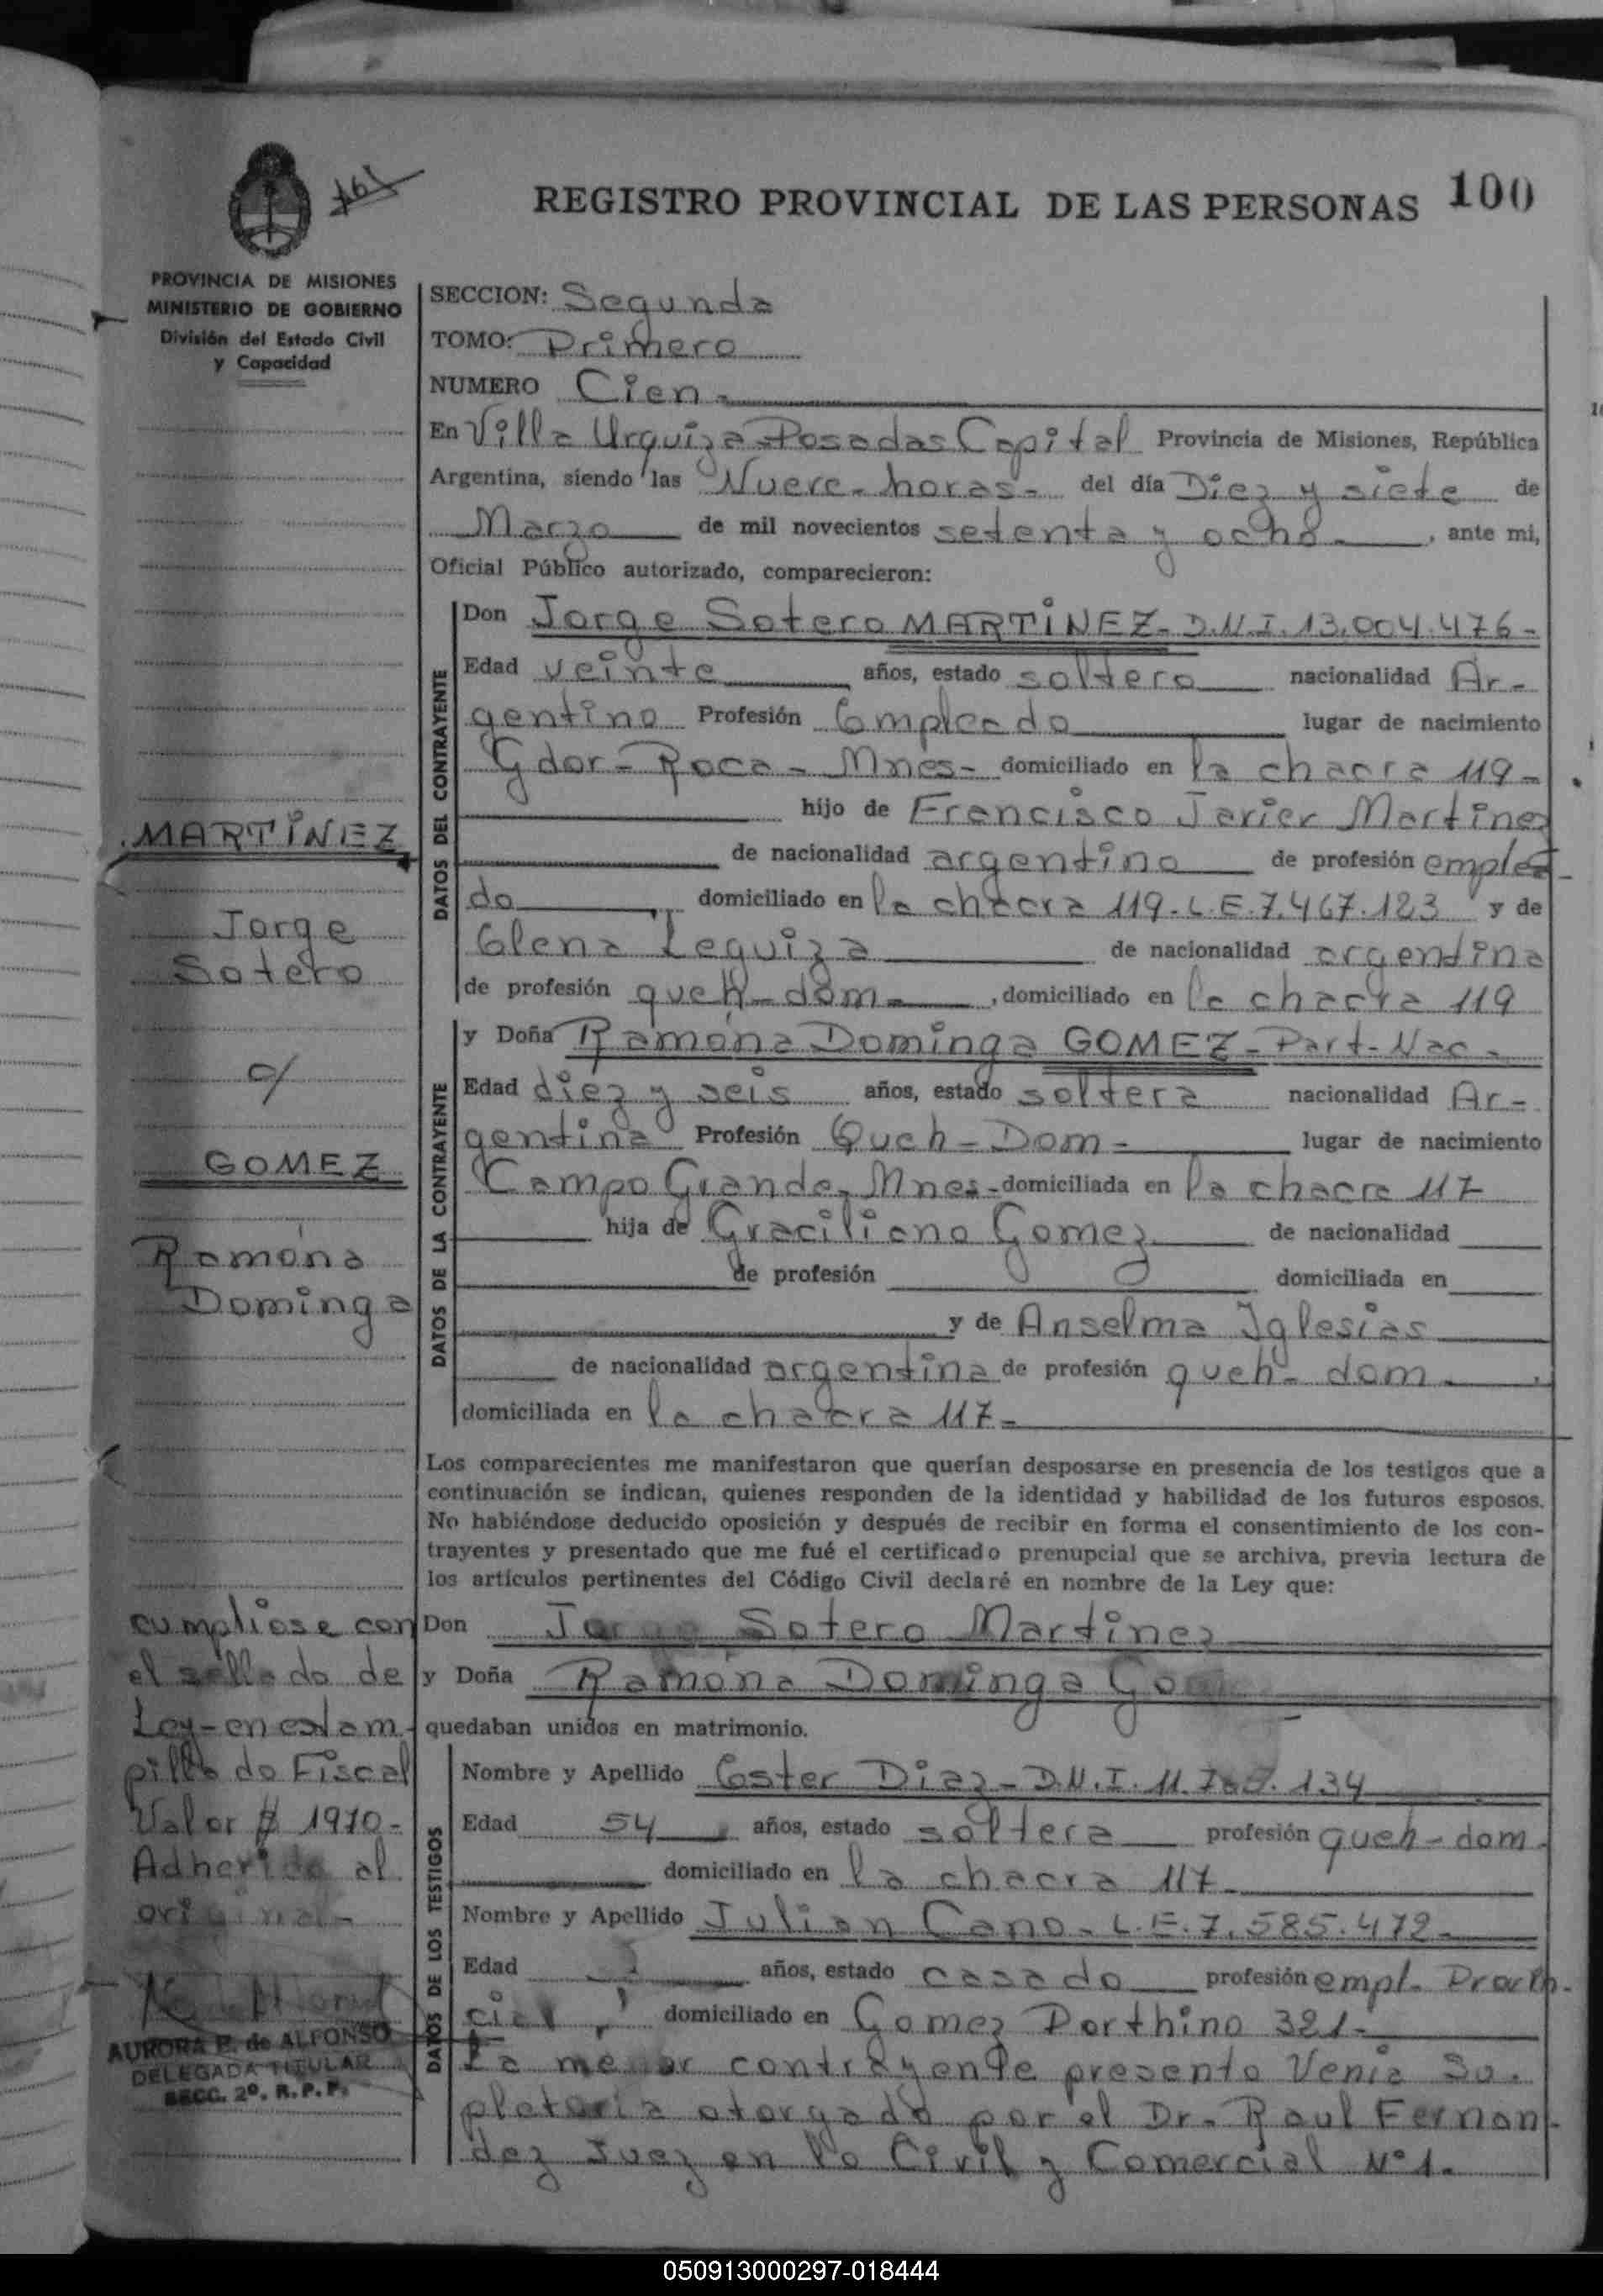 REGISTRO PROVINCIAL DE LAS PERSONAS 100
PROVINCIA DE MISIONES
MINISTERIO DE GOBIERNO
División del Estado Civil
y Capacidad
SECCION: Segunda
TOMO: Primero
NUMERO Cien.
En Villa Urquiza-Posadas Capital Provincia de Misiones, República
Argentina, siendo las Nueve-horas- del día Diez y siete de
Marzo de mil novecientos setenta y ocho , ante mi,
Oficial Público autorizado, comparecieron:
DATOS DEL CONTRAYENTE
Don Jorge Sotero MARTINEZ- D.N.I. 13.004.476-
Edad veinte años, estado soltero nacionalidad Ar-
gentino Profesión Empleado lugar de nacimiento
Gdor-Roca-Mnes- domiciliado en la chacra 119-
hijo de Francisco Javier Martinez
de nacionalidad argentino de profesión emplea-
do domiciliado en la chacra 119-L.E.7.467.123 y de
Elena Leguiza de nacionalidad argentina
de profesión queh-dom- , domiciliado en la chacra 119
DATOS DE LA CONTRAYENTE
y Doña Ramona Dominga GOMEZ- Part-Nac-
Edad diez y seis años, estado soltera nacionalidad Ar-
gentina Profesión Queh-Dom- lugar de nacimiento
Campo Grande-Mnes- domiciliada en la chacra 117
hija de Graciliano Gomez de nacionalidad
de profesión domiciliada en
y de Anselma Iglesias
de nacionalidad argentina de profesión queh-dom
domiciliada en la chacra 117-
Los comparecientes me manifestaron que querían desposarse en presencia de los testigos que a
continuación se indican, quienes responden de la identidad y habilidad de los futuros esposos.
No habiéndose deducido oposición y después de recibir en forma el consentimiento de los con-
trayentes y presentado que me fué el certificado prenupcial que se archiva, previa lectura de
los artículos pertinentes del Código Civil declaré en nombre de la Ley que:
Don Jorge Sotero Martinez
y Doña Ramona Dominga
quedaban unidos en matrimonio.
DATOS DE LOS TESTIGOS
Nombre y Apellido Ester Diaz-D.N.I. 134
Edad 54 años, estado soltera profesión queh-dom-
domiciliado en la chacra 117-
Nombre y Apellido Julian Cano-L.E.7.585.472-
Edad años, estado casado profesión empl-
domiciliado en Gomez Porthino 321-
La menor contrayente presento Venia Su-
pletoria otorgado por el Dr-Raul Fernan-
dez Juez en lo Civil y Comercial Nº1.
MARTINEZ
Jorge
Sotero
c/
GOMEZ
Ramona
Dominga
cumpliose con
el sellado de
Ley-en estam-
pillado Fiscal
Valor $ 1970-
Adherido al
original-
AURORA P. de ALFONSO
DELEGADA TITULAR
SECC. 2º. R. P. P.
050913000297-018444